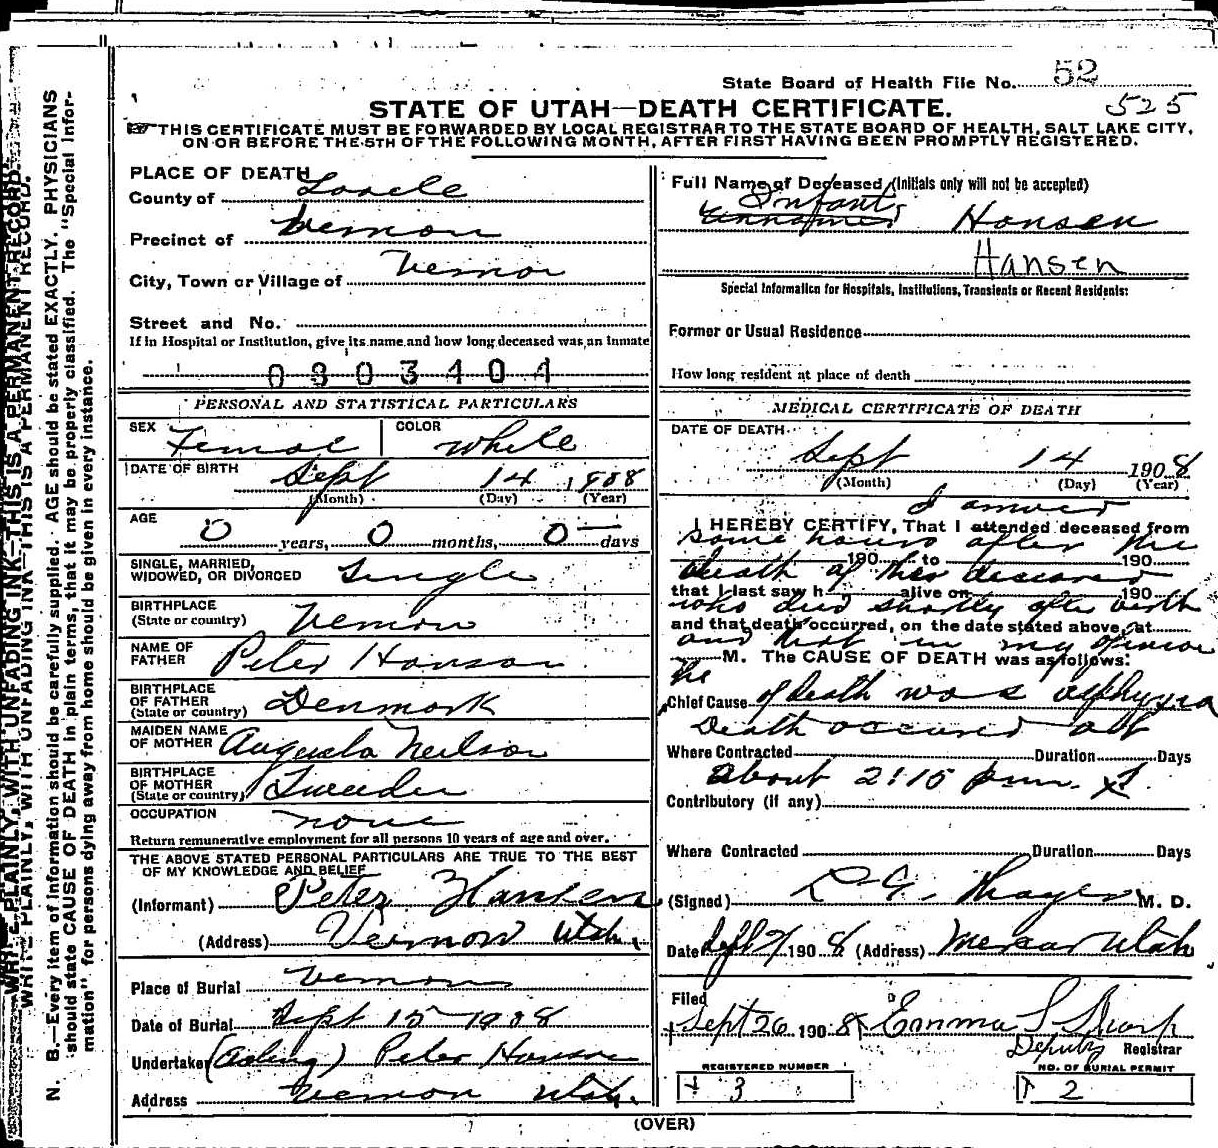 State Board of Health File No. 52
STATE OF UTAH—DEATH CERTIFICATE. 525
THIS CERTIFICATE MUST BE FORWARDED BY LOCAL REGISTRAR TO THE STATE BOARD OF HEALTH, SALT LAKE CITY,
ON OR BEFORE THE 5TH OF THE FOLLOWING MONTH, AFTER FIRST HAVING BEEN PROMPTLY REGISTERED.
WRITE PLAINLY, WITH UNFADING INK—THIS IS A PERMANENT RECORD.
N. B.—Every item of information should be carefully supplied. AGE should be stated EXACTLY. PHYSICIANS
should state CAUSE OF DEATH in plain terms, that it may be properly classified. The "Special Infor-
mation" for persons dying away from home should be given in every instance.
PLACE OF DEATH
County of Tooele
Precinct of Vernon
City, Town or Village of Vernon
Street and No.
If in Hospital or Institution, give its name and how long deceased was an inmate
0303404
PERSONAL AND STATISTICAL PARTICULARS
SEX Female COLOR White
DATE OF BIRTH Sept 14 1908
(Month) (Day) (Year)
AGE
0 years, 0 months, 0 days
SINGLE, MARRIED,
WIDOWED, OR DIVORCED Single
BIRTHPLACE
(State or country) Vernon
NAME OF
FATHER Peter Hanson
BIRTHPLACE
OF FATHER
(State or country) Denmark
MAIDEN NAME
OF MOTHER Augusta Neilson
BIRTHPLACE
OF MOTHER
(State or country) Sweeden
OCCUPATION none
Return remunerative employment for all persons 10 years of age and over.
THE ABOVE STATED PERSONAL PARTICULARS ARE TRUE TO THE BEST
OF MY KNOWLEDGE AND BELIEF
(Informant) Peter Hansen
(Address) Vernon Utah.
Place of Burial Vernon
Date of Burial Sept 15 1908
Undertaker (Acting) Peter Hanson
Address Vernon Utah.
Full Name of Deceased (Initials only will not be accepted)
Infant
Unnamed Hansen
Hansen
Special Information for Hospitals, Institutions, Transients or Recent Residents:
Former or Usual Residence
How long resident at place of death
MEDICAL CERTIFICATE OF DEATH
DATE OF DEATH
Sept 14 1908
(Month) (Day) (Year)
I arrived
I HEREBY CERTIFY, That I attended deceased from
some hours after the
190 to 190
death of the deceased
that I last saw h alive on 190
who died shortly after birth
and that death occurred, on the date stated above, at
and that in my opinion
M. The CAUSE OF DEATH was as follows:
the
Chief Cause of death was asphyxia
Death occured at
Where Contracted Duration Days
about 2:15 p.m.
Contributory (if any)
Where Contracted Duration Days
(Signed) M. D.
Date Sept 21 1908 (Address) Mercur Utah
Filed
Sept 26 1908 Emma S Sharp
Deputy Registrar
REGISTERED NUMBER
3
NO. OF BURIAL PERMIT
2
(OVER)